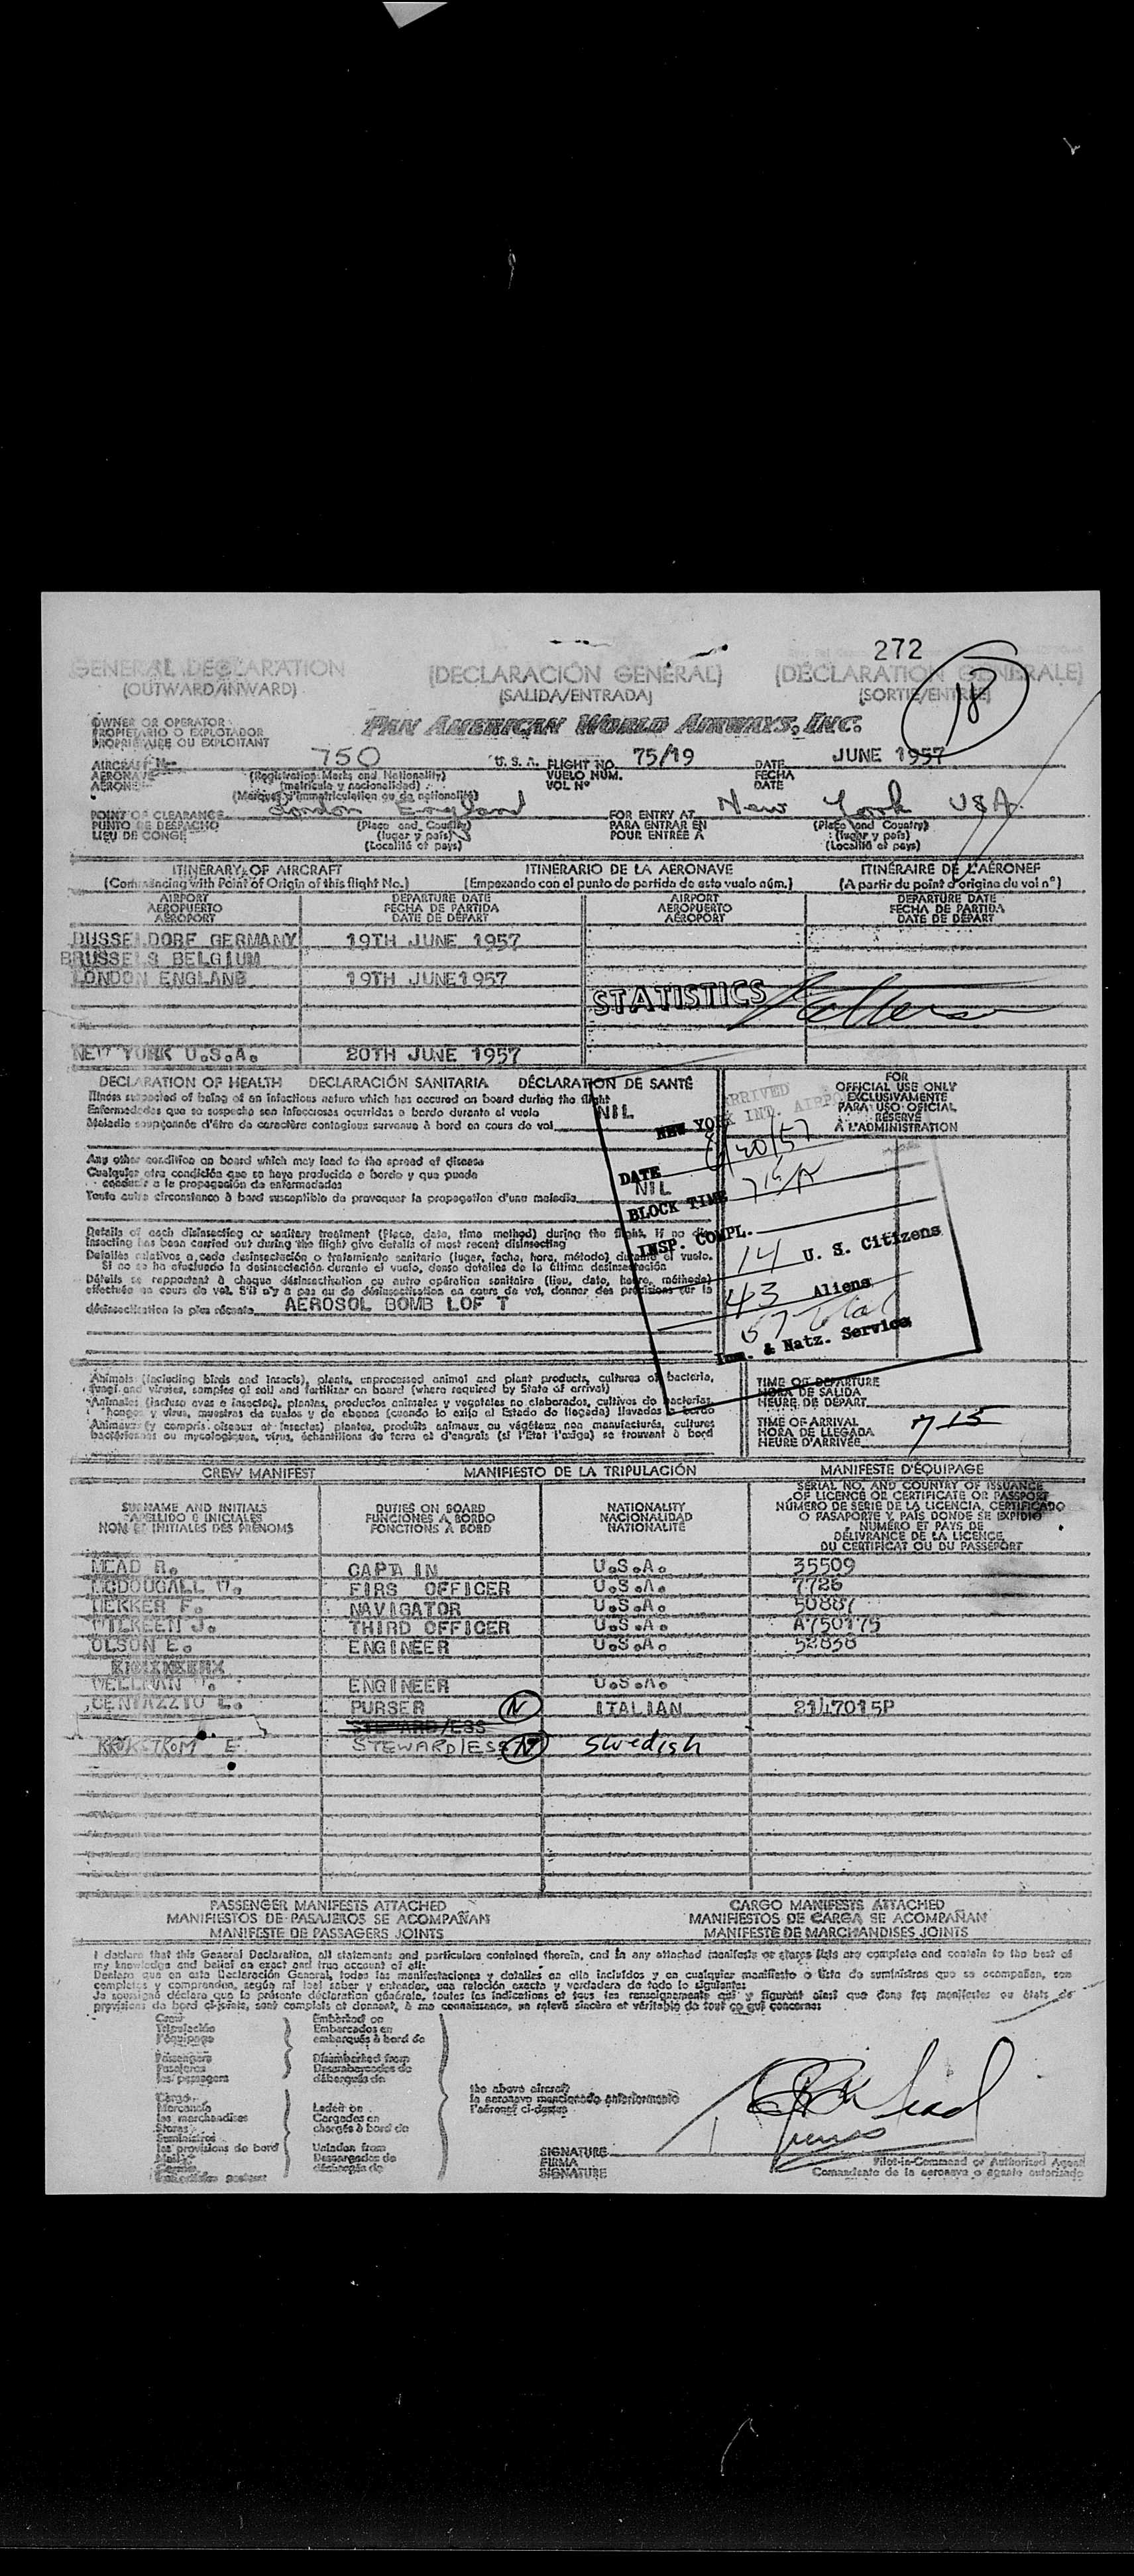 272
GENERAL DECLARATION (DECLARACIÓN GENERAL) (DÉCLARATION GÉNÉRALE)
(OUTWARD/INWARD) (SALIDA/ENTRADA) (SORTIE/ENTRÉE)
18
OWNER OR OPERATOR
PROPIETARIO O EXPLOTADOR
PROPRIÉTAIRE OU EXPLOITANT
PAN AMERICAN WORLD AIRWAYS, INC.
AIRCRAFT 750 U.S.A. FLIGHT NO. 75/19 DATE JUNE 1957
AERONAVE (Registration Marks and Nationality) VUELO NÚM. FECHA
AÉRONEF (matrícula y nacionalidad) VOL Nº DATE
(Marques d'immatriculation ou de nationalité)
POINT OF CLEARANCE London England FOR ENTRY AT New York USA
PUNTO DE DESPACHO (Place and Country) PARA ENTRAR EN (Place and Country)
LIEU DE CONGÉ (lugar y país) POUR ENTRÉE À (lugar y país)
(Localité et pays) (Localité et pays)
ITINERARY OF AIRCRAFT ITINERARIO DE LA AERONAVE ITINÉRAIRE DE L'AÉRONEF
(Commencing with Point of Origin of this flight No.) (Empezando con el punto de partida de este vuelo núm.) (A partir du point d'origine du vol nº)
AIRPORT DEPARTURE DATE AIRPORT DEPARTURE DATE
AEROPUERTO FECHA DE PARTIDA AEROPUERTO FECHA DE PARTIDA
AÉROPORT DATE DE DÉPART AÉROPORT DATE DE DÉPART
DUSSELDORF GERMANY 19TH JUNE 1957
BRUSSELS BELGIUM
LONDON ENGLAND 19TH JUNE 1957
STATISTICS
NEW YORK U.S.A. 20TH JUNE 1957
DECLARATION OF HEALTH DECLARACIÓN SANITARIA DÉCLARATION DE SANTÉ
Illness suspected of being of an infectious nature which has occured on board during the flight
Enfermedades que se sospecha son infecciosas ocurridas a bordo durante el vuelo
Maladie soupçonnée d'être de caractère contagieux survenue à bord en cours de vol
NIL
Any other condition on board which may lead to the spread of disease
Cualquier otra condición que se haya producido a bordo y que pueda
conducir a la propagación de enfermedades
Toute autre circonstance à bord susceptible de provoquer la propagation d'une maladie
NIL
Details of each disinsecting or sanitary treatment (Place, date, time method) during the flight. If no dis-
insecting has been carried out during the flight give details of most recent disinsecting
Detalles relativos a cada desinsectación o tratamiento sanitario (lugar, fecha, hora, método) durante el vuelo.
Si no se ha efectuado la desinsectación durante el vuelo, dense detalles de la última desinsectación
Détails se rapportant à chaque désinsectisation ou autre opération sanitaire (lieu, date, heure, méthode)
effectuée en cours de vol. S'il n'y a pas eu de désinsectisation en cours de vol, donner des précisions sur la
désinsectisation la plus récente AEROSOL BOMB LOF T
FOR
OFFICIAL USE ONLY
EXCLUSIVAMENTE
PARA USO OFICIAL
RÉSERVÉ
À L'ADMINISTRATION
ARRIVED
NEW YORK INT. AIRPORT
DATE 6/20/57
BLOCK TIME 7 15 A
INSP. COMPL.
14 U. S. Citizens
43 Aliens
57 total
Imm. & Natz. Service
Animals (including birds and insects), plants, unprocessed animal and plant products, cultures of bacteria,
fungi and viruses, samples of soil and fertilizer on board (where required by State of arrival)
Animales (incluso aves e insectos), plantas, productos animales y vegetales no elaborados, cultivos de bacterias,
hongos y virus, muestras de suelos y de abonos (cuando lo exija el Estado de llegada) llevados a bordo
Animaux (y compris oiseaux et insectes) plantes, produits animaux ou végétaux non manufacturés, cultures
bactériennes ou mycologiques, virus, échantillons de terre et d'engrais (si l'État l'exige) se trouvant à bord
TIME OF DEPARTURE
HORA DE SALIDA
HEURE DE DÉPART
TIME OF ARRIVAL
HORA DE LLEGADA
HEURE D'ARRIVÉE 7 15
CREW MANIFEST MANIFIESTO DE LA TRIPULACIÓN MANIFESTE D'ÉQUIPAGE
SURNAME AND INITIALS DUTIES ON BOARD NATIONALITY SERIAL NO. AND COUNTRY OF ISSUANCE OF LICENCE OR CERTIFICATE OR PASSPORT
APELLIDO E INICIALES FUNCIONES A BORDO NACIONALIDAD NÚMERO DE SERIE DE LA LICENCIA, CERTIFICADO O PASAPORTE Y PAÍS DONDE SE EXPIDIÓ
NOM ET INITIALES DES PRÉNOMS FONCTIONS À BORD NATIONALITÉ NUMÉRO ET PAYS DE DÉLIVRANCE DE LA LICENCE, DU CERTIFICAT OU DU PASSEPORT
MEAD R. CAPTAIN U.S.A. 35509
MCDOUGALL W. FIRS OFFICER U.S.A. 7726
DEKKER F. NAVIGATOR U.S.A. 50887
THIRD OFFICER U.S.A. A750175
OLSON E. ENGINEER U.S.A. 52838
WELLMAN ENGINEER U.S.A.
CENTAZZIO L. PURSER N ITALIAN 2147015P
STEWARD/ESS
KROKSTROM E. STEWARD/ESS N Swedish
PASSENGER MANIFESTS ATTACHED CARGO MANIFESTS ATTACHED
MANIFIESTOS DE PASAJEROS SE ACOMPAÑAN MANIFIESTOS DE CARGA SE ACOMPAÑAN
MANIFESTE DE PASSAGERS JOINTS MANIFESTE DE MARCHANDISES JOINTS
I declare that this General Declaration, all statements and particulars contained therein, and in any attached manifests or stores lists are complete and contain to the best of
my knowledge and belief an exact and true account of all:
Declaro que en esta Declaración General, todas las manifestaciones y detalles en ella incluídos y en cualquier manifiesto o lista de suministros que se acompañan, son
completos y comprenden, según mi leal saber y entender, una relación exacta y verdadera de todo lo siguiente:
Je soussigné déclare que la présente déclaration générale, toutes les indications et tous les renseignements qui y figurent ainsi que dans les manifestes ou états de
provisions de bord ci-joints, sont complets et donnent, à ma connaissance, un relevé sincère et véritable de tout ce qui concerne:
Crew Embarked on
Tripulación Embarcados en
l'équipage embarqués à bord de
Passengers Disembarked from
Pasajeros Desembarcados de
les passagers débarqués de
Cargo
Mercancía Laden on
les marchandises Cargados en
Stores chargés à bord de
Suministros
les provisions de bord Unladen from
Mails Descargados de
Correo déchargés de
the above aircraft
la aeronave mencionada anteriormente
l'aéronef ci-dessus
SIGNATURE
FIRMA
SIGNATURE
Pilot-in-Command or Authorized Agent
Comandante de la aeronave o agente autorizado